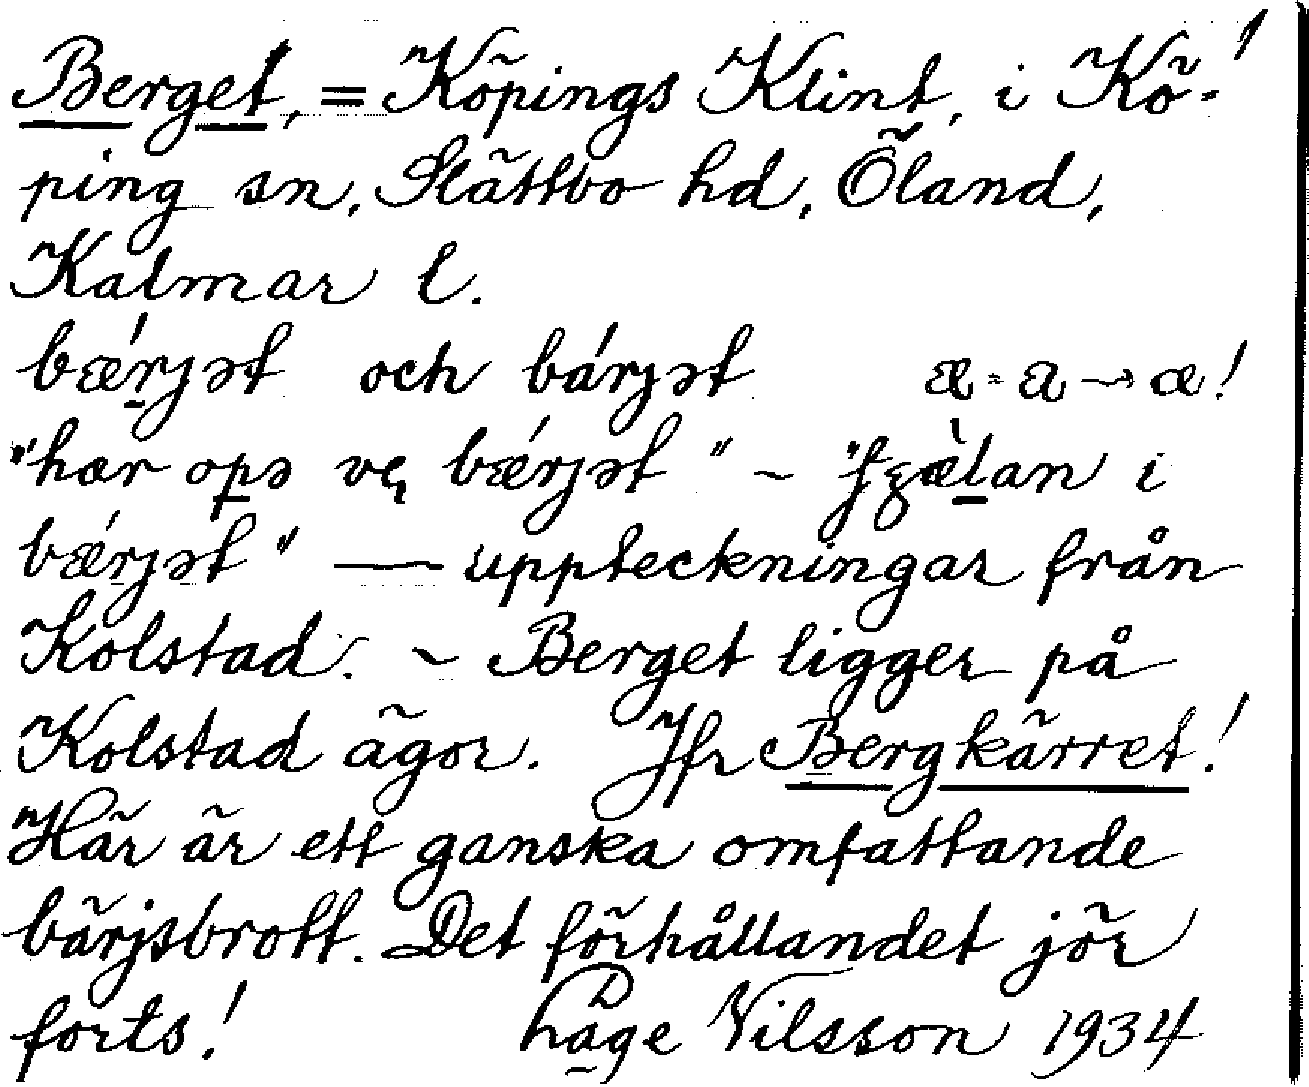 Berget, = Köpings Klint, i Kö- 1
ping sn, Slättbo hd, Öland,
Kalmar l.
bǽrjət och bárjət æ = a → œ!
"hær opə bǽrjət" ~ i
bǽrjət" — uppteckningar från
Kolstad. ~ Berget ligger på
Kolstad ägor. Jfr Bergkärret!
Här är ett ganska omfattande
bärjsbrott. Det förhållandet jör
forts! Håge Nilsson 1934